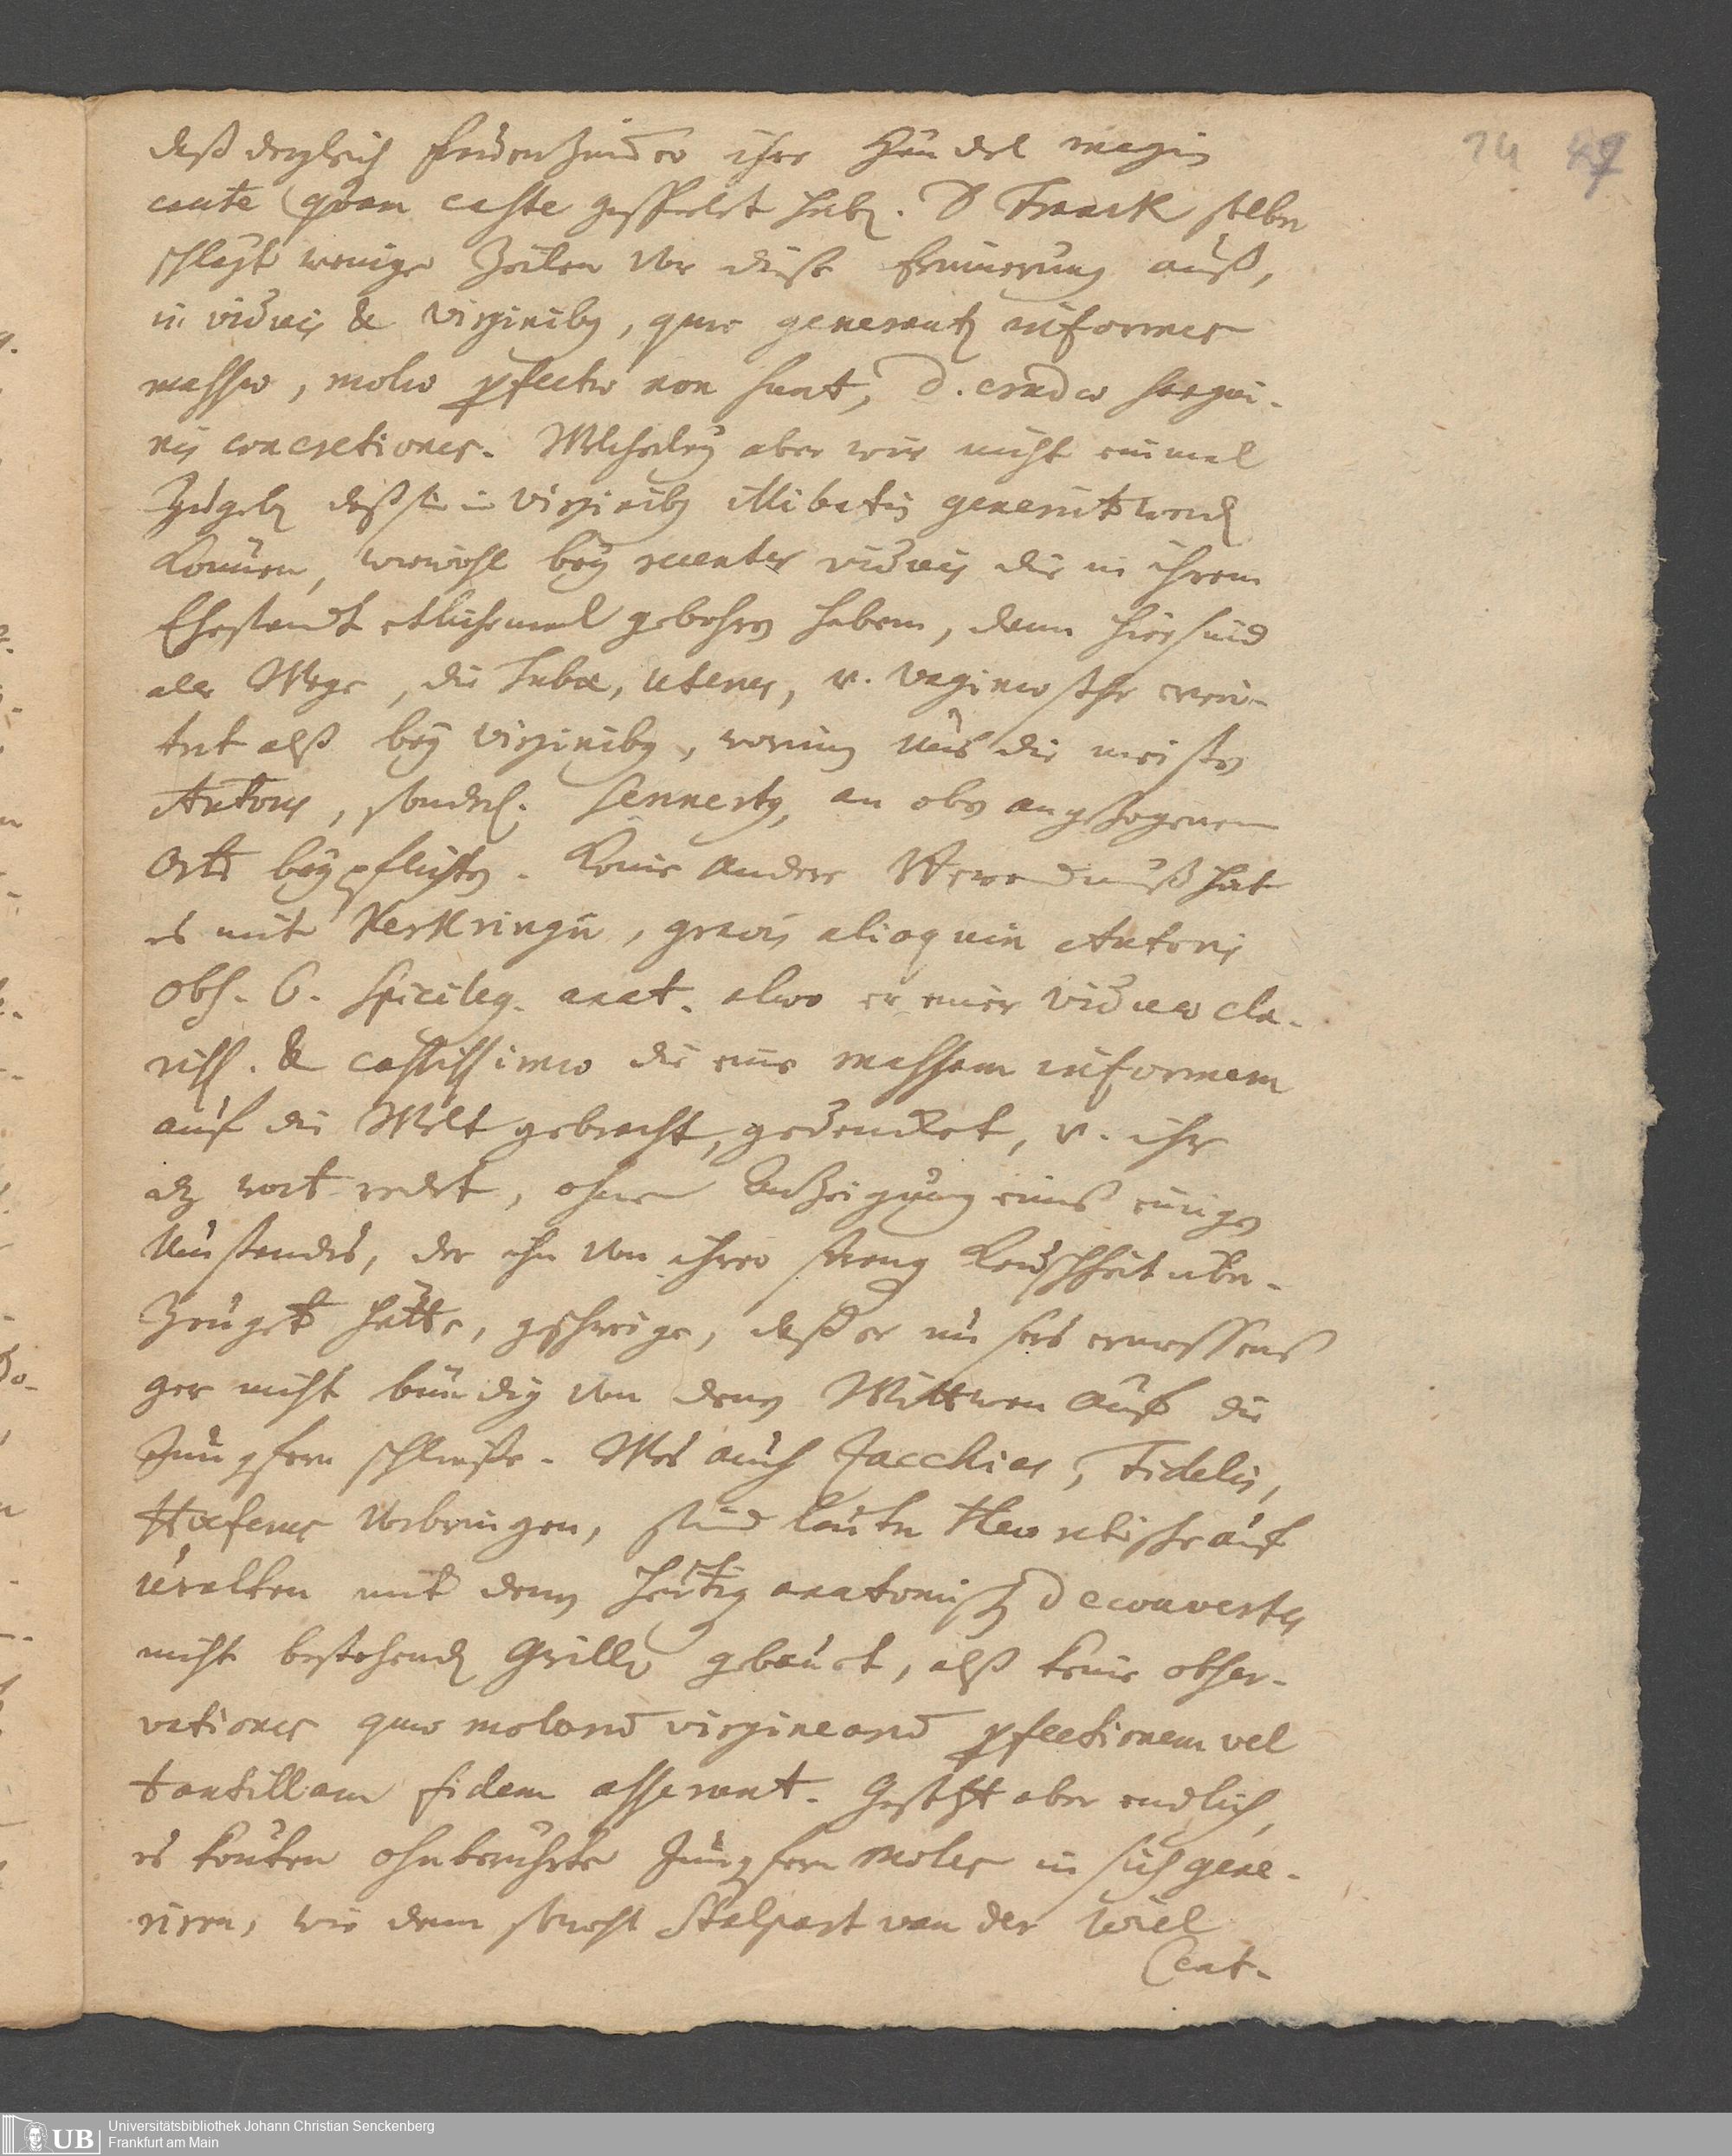 daß dergleich Frauenzimer ihre Händel magis
caute quam caste gespielet hab. D Franck selber
schlägt wenige Zeilen vor diese Erinnerung auß,
in viduis & virginibg, quae generantz informes
massae, molae pfectae non sunt, d. crudae sangui-
nis concretiones. Welcherley aber wir nicht einmal
Zugeb daß sie in virginibg illibatis generirt werd
können, wiewohl bey recenter viduis die in ihrem
Ehestandt etlichemal gebohrn haben, dann hier sind
alle Wege, die tubae, uterus, u. vagina sehr erwei-
tert alß bey virginibg, worinn uns die meisten
Autores, sonderl. Sennertg, an oben angezogenem
Orte beypflichten. Keine andere Bewandnuß hat
es mit Kerkringii, gravis alioquin Autoris
obs. 6. spicileg. anat. alwo er einer viduae cla-
riss. & castissimae die eine massam informem
auf die Welt gebracht, gedencket, u. ihr
dz wort redet, ohne Anzeigung eines einigen
Umstandes, der ihn von ihrer streng Keuschheit über-
zeuget hätte, geschweige, daß er unsers ermessens
gar nicht bündig von denen Wittwen auf die
Jungfern schließe. Was auch Zacchias, Fidelis,
Hofeng vorbringen, sind lauter theoretische auf
uralten mit denen heutig anatomisch decouvertes
nicht bestehend Grillen gebauet, alß keine obser-
vationes quae molarum virginearum pfectionem vel
tantillam fidem asserant. Gesetzt aber endlich,
es könten ohnberührte Jungfern molas in sich gene-
riren, wie dann sowohl Stalpart van der Wiel
Cent-
24 47
Universitätsbibliothek Johann Christian Senckenberg
Frankfurt am Main
UB